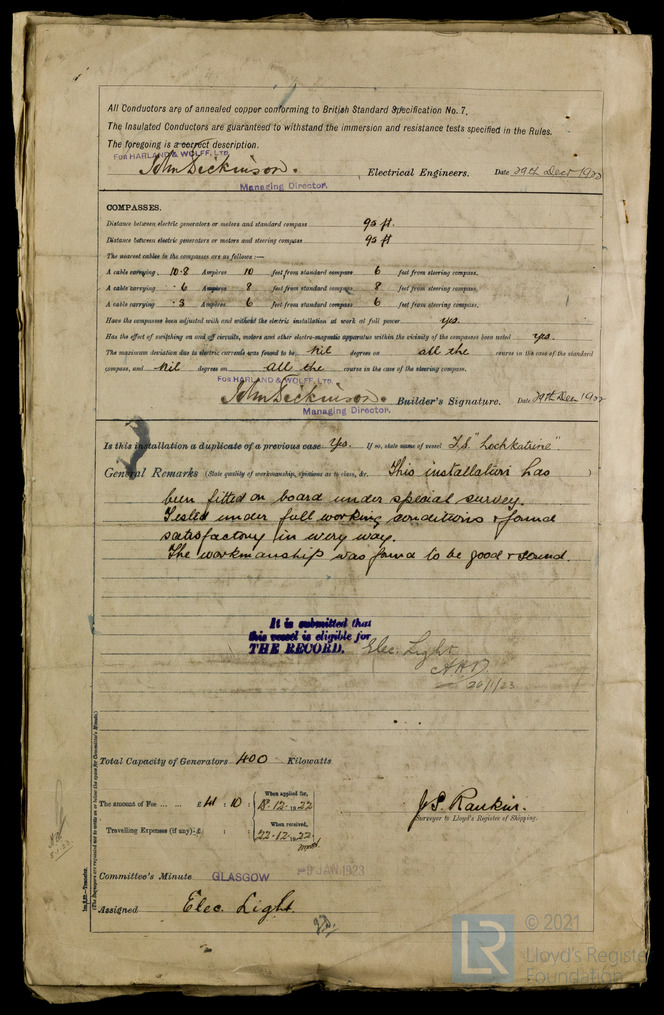 All Conductors are of annealed copper conforming to British Standard Specification No. 7.
The Insulated Conductors are guaranteed to withstand the immersion and resistance tests specified in the Rules.
The foregoing is a correct description.
FOR HARLAND & WOLFF, LTD.
John Dickinson. Electrical Engineers. Date 29th Decr 1922
Managing Director.
COMPASSES.
Distance between electric generators or motors and standard compass 90 ft.
Distance between electric generators or motors and steering compass 90 ft
The nearest cables to the compasses are as follows:—
A cable carrying 10.8 Ampères 10 feet from standard compass 6 feet from steering compass.
A cable carrying .6 Ampères 8 feet from standard compass 8 feet from steering compass.
A cable carrying .3 Ampères 6 feet from standard compass 6 feet from steering compass.
Have the compasses been adjusted with and without the electric installation at work at full power yes.
Has the effect of switching on and off circuits, motors and other electro-magnetic apparatus within the vicinity of the compasses been noted yes.
The maximum deviation due to electric currents was found to be Nil degrees on all the course in the case of the standard
compass, and Nil degrees on all the course in the case of the steering compass.
FOR HARLAND & WOLFF, LTD.
John Dickinson. Builder's Signature. Date 29th Dec 1922
Managing Director.
Is this installation a duplicate of a previous case Yes. If so, state name of vessel T.S. "Lochkatrine"
General Remarks (State quality of workmanship, opinions as to class, &c. This installation has )
been fitted on board under special survey.
Tested under full working conditions & found
satisfactory in every way.
The workmanship was found to be good & sound.
It is submitted that
this vessel is eligible for
THE RECORD. Elec. Light
26/1/23
Total Capacity of Generators 400 Kilowatts
The amount of Fee ... ... £41 : 10 : When applied for, 18.12.1922
Travelling Expenses (if any) £ : : When received, 22.12.1922
J.S. Rankin.
Surveyor to Lloyd's Register of Shipping.
Committee's Minute GLASGOW -9 JAN 1923
Assigned Elec. Light.
(The Surveyors are requested not to write on or below the space for Committee's Minute.)
LR © 2021
Lloyd's Register
Foundation